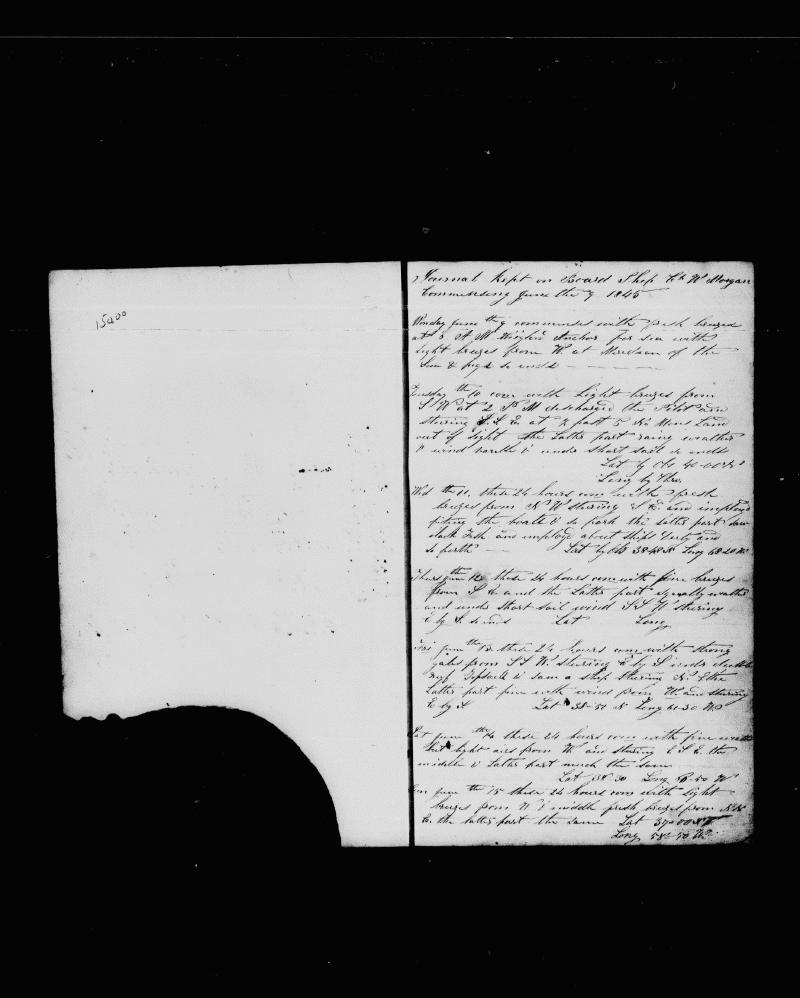 15400
Journal Kept on Board Ship Ch W Morgan
Commensing June the 9 1845
Monday June the 9 commenses with fresh brezes
at 8 A M Anchor for sea with
Light brezes from W. at Meridian of the
Sun & fog so ends
Tuesday the 10 com with Light brezes from
S W at 2 P M discharged the Pilot and
stering S. S E. at ½ past 5 No Mans Land
out of sight the Latter part rainy weather
& wind & under short sail so ends
Lat by Obs 40-00
Long by Chro.
Wed the 11, these 24 hours com with fresh
brezes from N W stering S E and imployd
fiting the boats & so forth the latter part saw
black fish and imployd about ships duty and
so forth Lat by Obs 38-48 N Long 68-20 W
Thurs June 12 these 24 hours com with fine brezes
from S. E. and the Latter part squally weather
and under short sail wind S S W stering
E by S. so ends Lat Long
Fri June the 13 these 24 hours com with strong
gales from S S W. stering E by S under
reef Topsails & saw a ship stering N. E the
Latter part fine with wind from W. and stering
E by S Lat 38-51 N Long 61-30 W
Sat June the 14 these 24 hours com with fine weather
but light airs from W. and stering E S E. the
middle & Latter part much the same
Lat 38 30 Long 50 W
Sun June the 15 these 24 hours com with light
brezes from W & middle fresh brezes from
the latter part the same Lat 37-00 N
Long 58-50 W